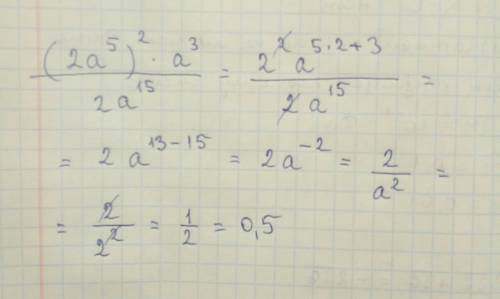 (2a⁵)² · a³ / 2a¹⁵ = 2² a⁵·²⁺³ / 2a¹⁵ =
= 2a¹³⁻¹⁵ = 2a⁻² = 2/a² =
= 2/2² = 1/2 = 0,5